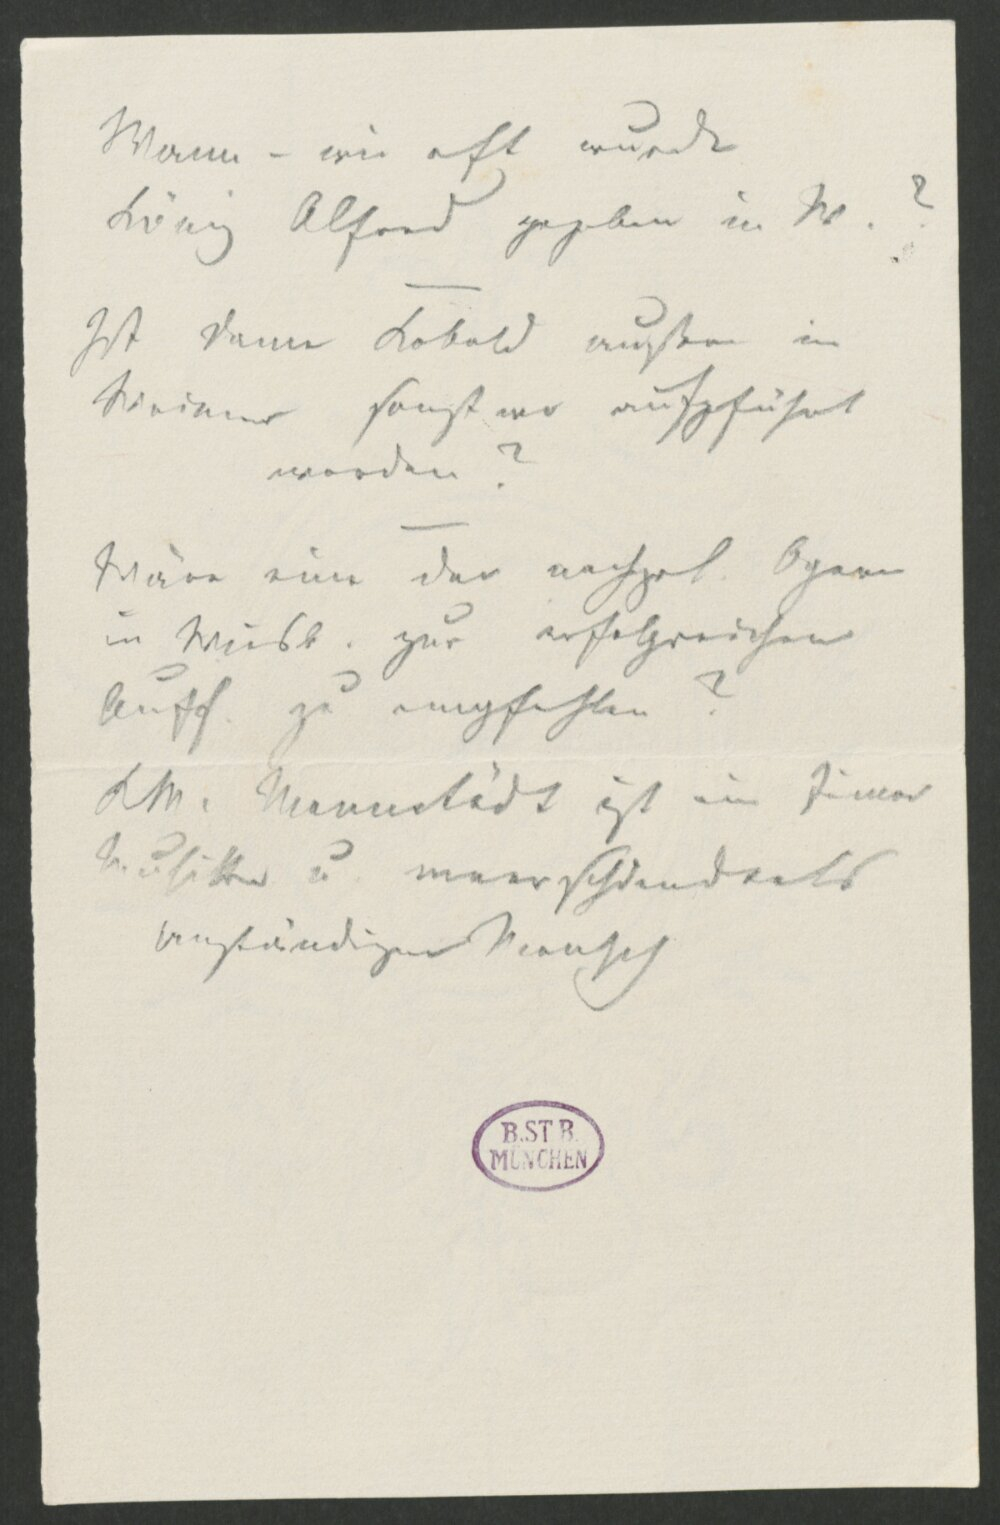 Wann – wie oft wurde
König Alfred gegeben in W.?
Ist Dame Kobold außer in
Weimar sonst wo aufgeführt
worden?
Wäre eine der nachgel. Opern
in Wiesb. zur erfolgreichen
Auff. zu empfehlen?
KM. Mannstädt ist ein
Musiker u.
anständiger Mensch
B.ST.B.
MÜNCHEN